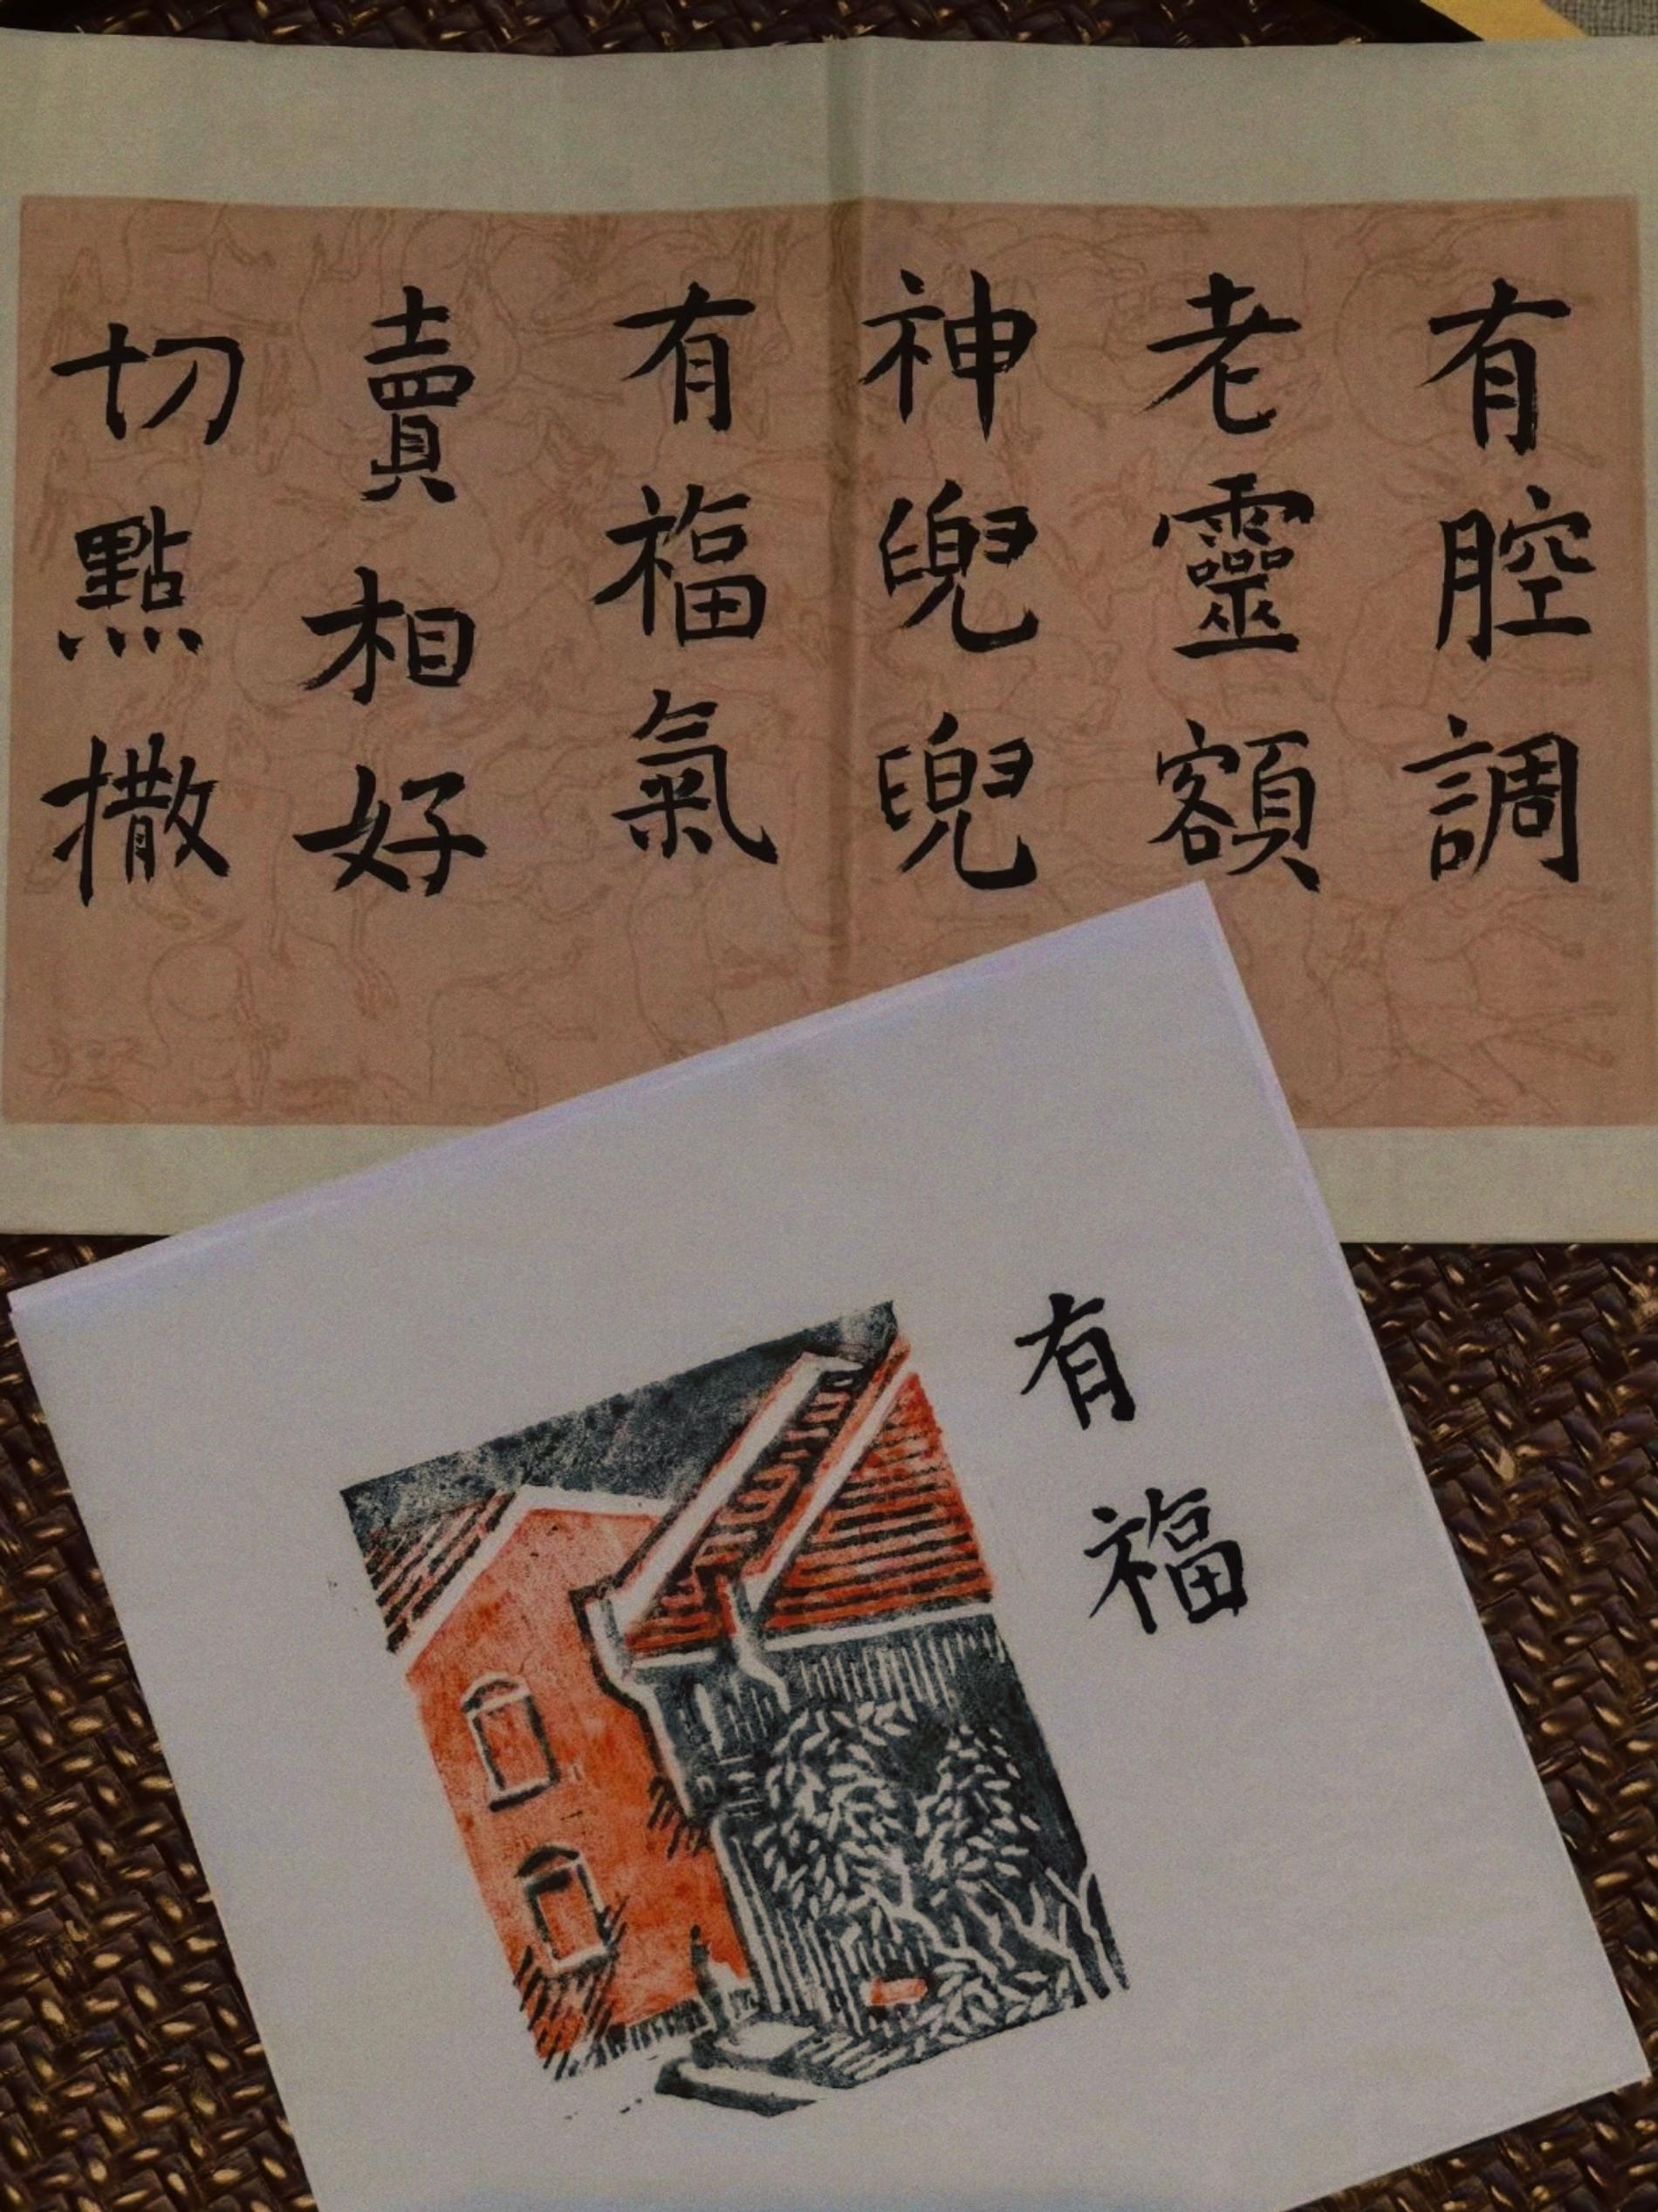 有腔調
老靈額
神兜兜
有福氣
賣相好
切點撒
有福